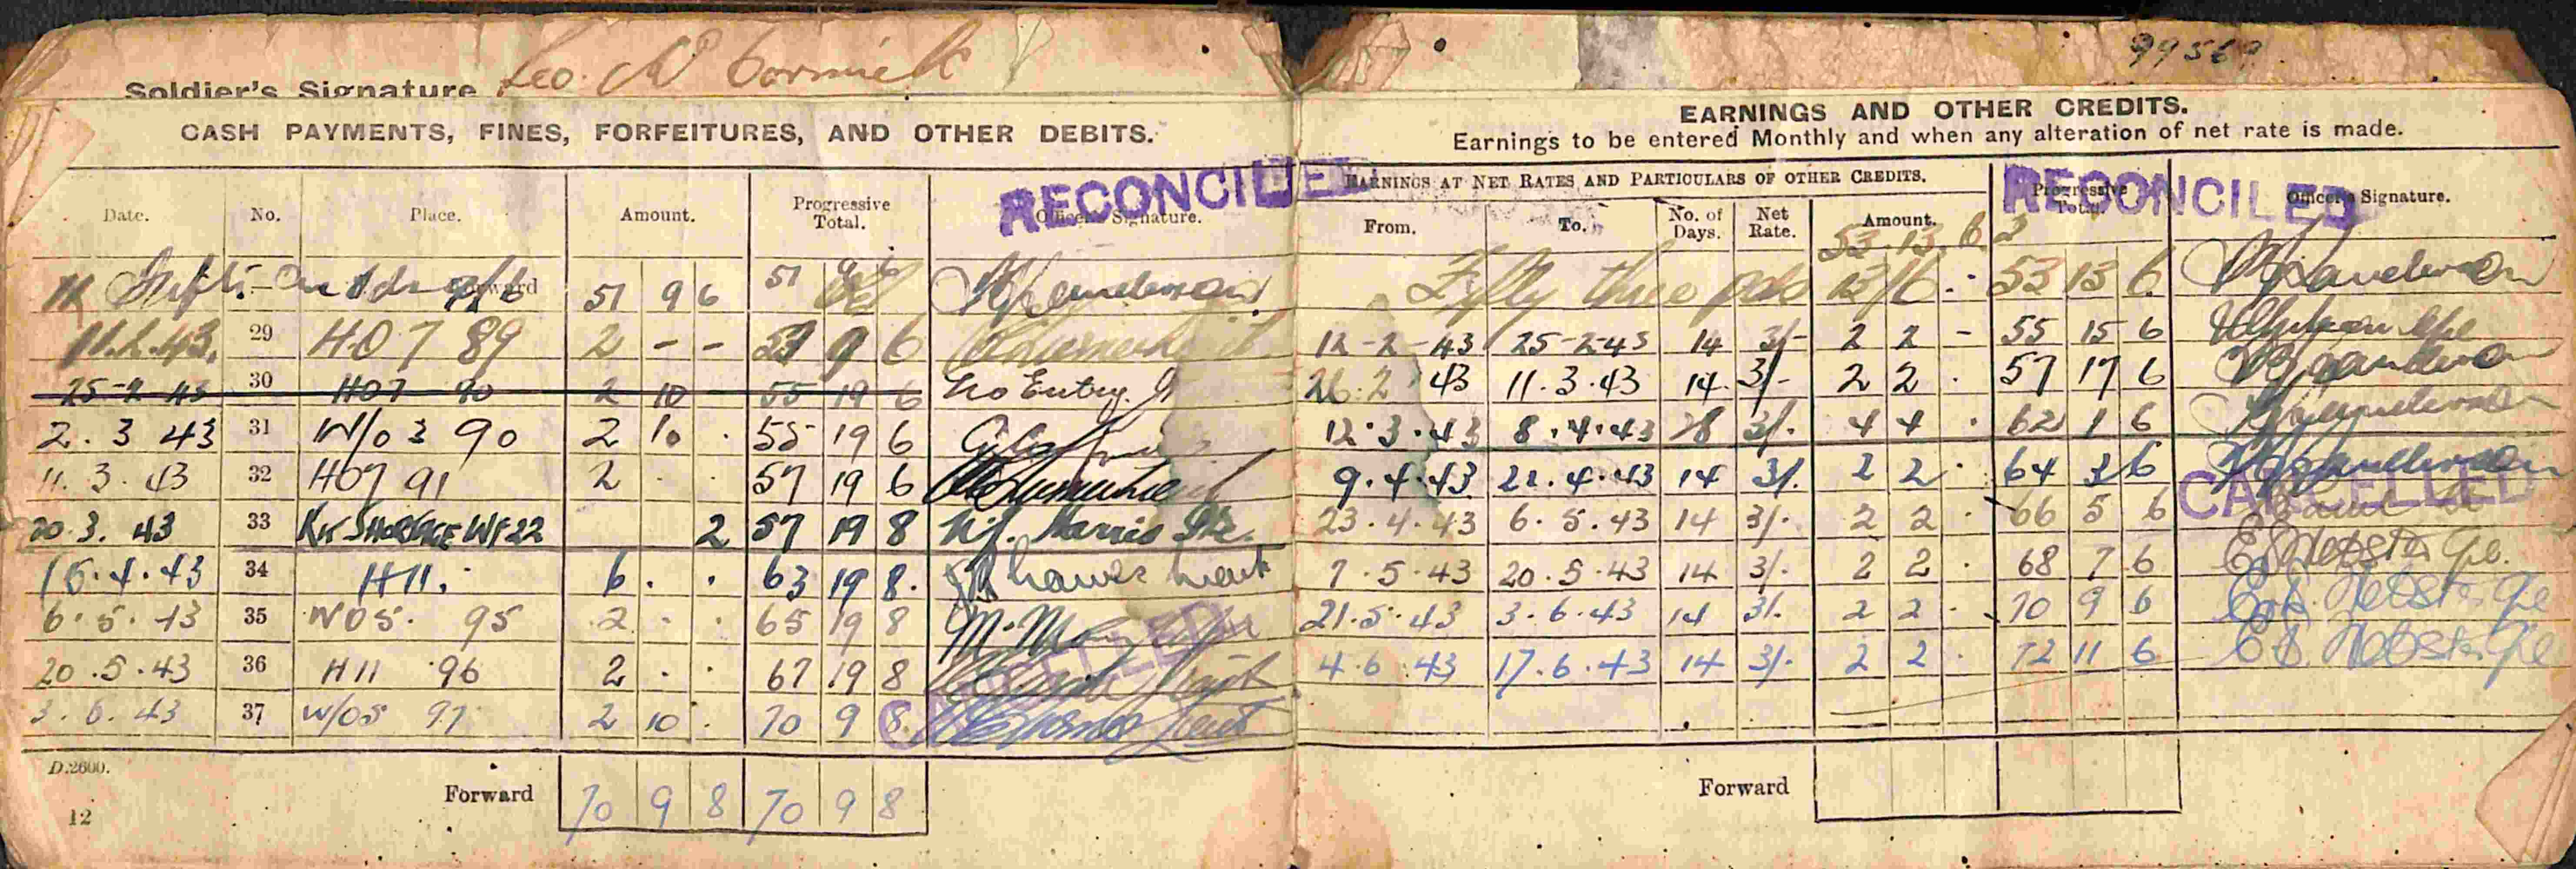 99569
Soldier's Signature Leo. McCormick
CASH PAYMENTS, FINES, FORFEITURES, AND OTHER DEBITS.
RECONCILED
Date. No. Place. Amount. Progressive Total. Officer's Signature.
Forward 51 9 6 51 9 6
11.2.43. 29 HO7 89 2 - - 53 9 6
25-2 43 30 HO7 90 2 10 - 55 19 6 No Entry.
2. 3 43 31 W/O3 90 2 10 . 55 19 6
11. 3. 43 32 HO7 91 2 . . 57 19 6
20. 3. 43 33 Kit SHORTAGE WF22 2 57 19 8 Harris
15.4.43 34 H11. 6 . . 63 19 8.
6.5.43 35 W05. 95 2 . . 65 19 8
20.5.43 36 H11 96 2 . . 67 19 8
3.6.43 37 W/O5 97 2 10 . 70 9 8
CANCELLED
D.2600.
Forward 70 9 8 70 9 8
12
EARNINGS AND OTHER CREDITS.
Earnings to be entered Monthly and when any alteration of net rate is made.
EARNINGS AT NET RATES AND PARTICULARS OF OTHER CREDITS. Progressive Total. Officer's Signature.
RECONCILED
From. To. No. of Days. Net Rate. Amount.
53.13.6
Fifty three pds 13/6 . 53 13 6
12-2-43 25-2-43 14 3/- 2 2 - 55 15 6
26.2 43 11.3.43 14. 3/- 2 2 . 57 17 6
12.3.43 8.4.43 28 3/. 4 4 . 62 1 6
9.4.43 22.4.43 14 3/. 2 2 . 64 3 6
CANCELLED
23.4.43 6.5.43 14 3/. 2 2 . 66 5 6
7.5.43 20.5.43 14 3/. 2 2 . 68 7 6 Webster
21.5.43 3.6.43 14 3/. 2 2 . 70 9 6 Webster
4.6.43 17.6.43 14 3/. 2 2 . 72 11 6 Webster
Forward